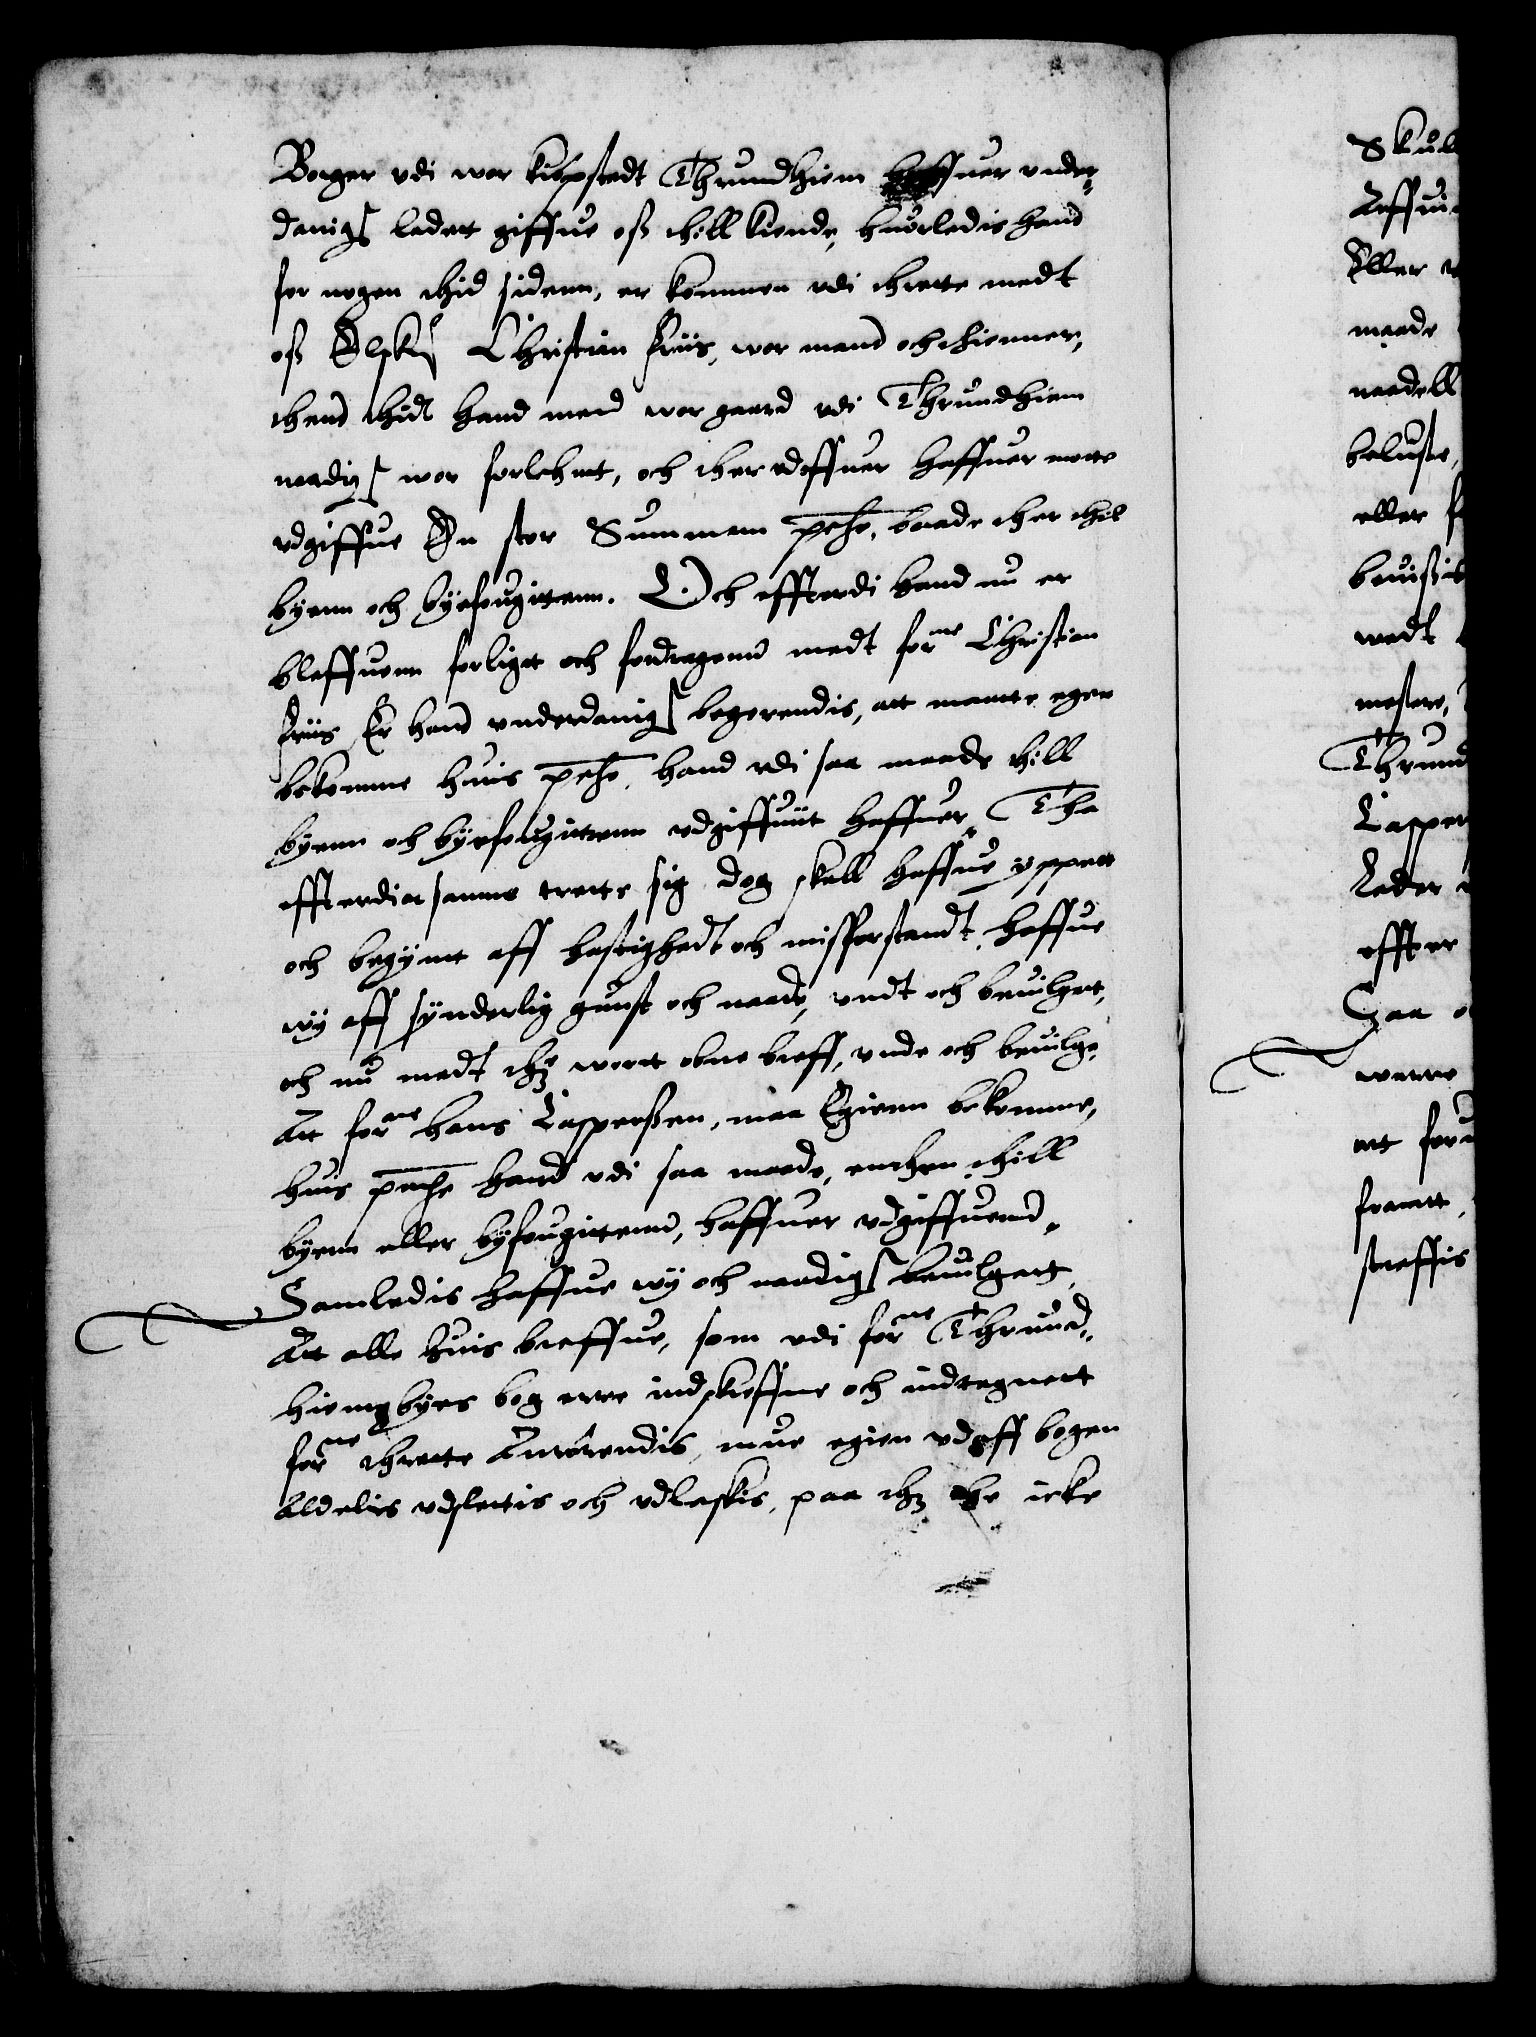 Borger vdi wor kiøpstedt Thrundhiem haffuer vnder¬
danigst ladet giffue oss thill kiende, huorledis hand
for nogen thid sidenn, er kommen vdi thrette medt
oss Elskel Christian friis, wor mand och thienner,
thend thidt hand med wor gaard vdi Thrundhiem
naadigst wor forlehnt, och ther vdoffuer haffuer motte
vdgiffue En stor Summam penge, baade ther thil
byenn och byefougittenn. Och effterdi hand nu er
bleffuenn forligt och fordragenn medt forne Christian
friis Er hand vnderdanigst begerendis, att maatte egen
bekomme huis penge, hand vdi saa maade thill
byenn och byefougittenn vdgiffuit haffuer, Tha
effterdi att samme trette sig dog skall haffue yppett
och begynt aff hastighedt och misforstandt, haffue
wy aff synderlig gunst och naade, vndt och beuilget,
och nu medt thz wort obne breff, vnde och beuilge,
Att forne Hans Casperssen, maa Egienn bekomme,
huis penge hand vdi saa maade, enthen thill
byenn eller byfougittenn, haffuer vdgiffuend,
Samledis haffue wy och naadigst beuilgett,
Att alle huis breffue, som vdi forne Thrund¬
hiems byes bog erre indskreffne och indtegnett
forne thrette Anrørendis, mue egien vdaff bogen
Aldelis vdslettis och vdleskis, paa thz the icke
Skul
Eller
maade
naadell
beluste,
eller
beuissis
medt
mestere,
Thrund
Casper
Lader
effter
Saa
werre
att foru
framtt,
straffis